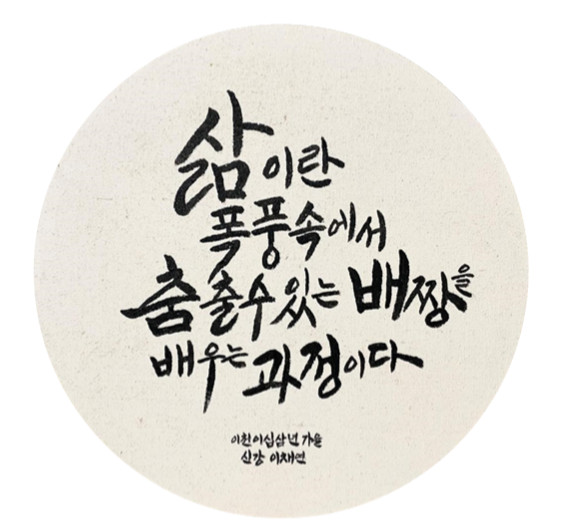 삶이란
폭풍속에서
춤출수있는 배짱을
배우는 과정이다
이천이십삼년 가을
신강 이채연